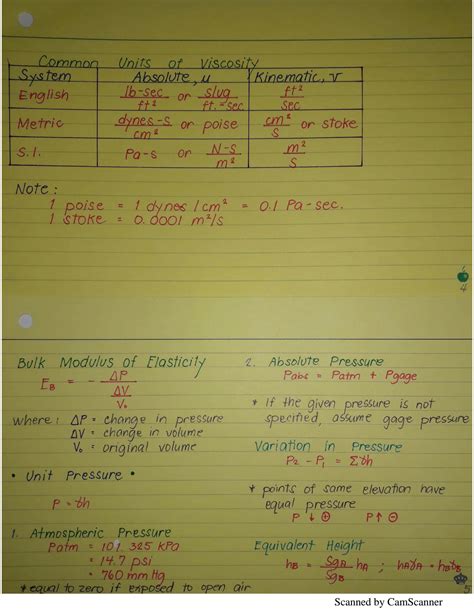 Common Units of Viscosity
System Absolute, μ Kinematic, ν
English lb-sec/ft² or slug/ft.-sec ft²/sec
Metric dynes-s/cm² or poise cm²/s or stoke
S.I. Pa-s or N-s/m² m²/s
Note :
1 poise = 1 dynes/cm² = 0.1 Pa-sec.
1 stoke = 0.0001 m²/s
4
Bulk Modulus of Elasticity
E_B = - ΔP / (ΔV / V₀)
where : ΔP = change in pressure
ΔV = change in volume
V₀ = original volume
• Unit Pressure •
P = γh
1. Atmospheric Pressure
Patm = 101.325 kPa
= 14.7 psi
= 760 mm Hg
* equal to zero if exposed to open air
2. Absolute Pressure
Pabs = Patm + Pgage
* If the given pressure is not
specified, assume gage pressure
Variation in Pressure
P₂ - P₁ = Σγh
* points of same elevation have
equal pressure
P ↓ ⊕ P ↑ ⊖
Equivalent Height
h_B = Sg_A/Sg_B h_A ; h_Aγ_A = h_Bγ_B
5
Scanned by CamScanner